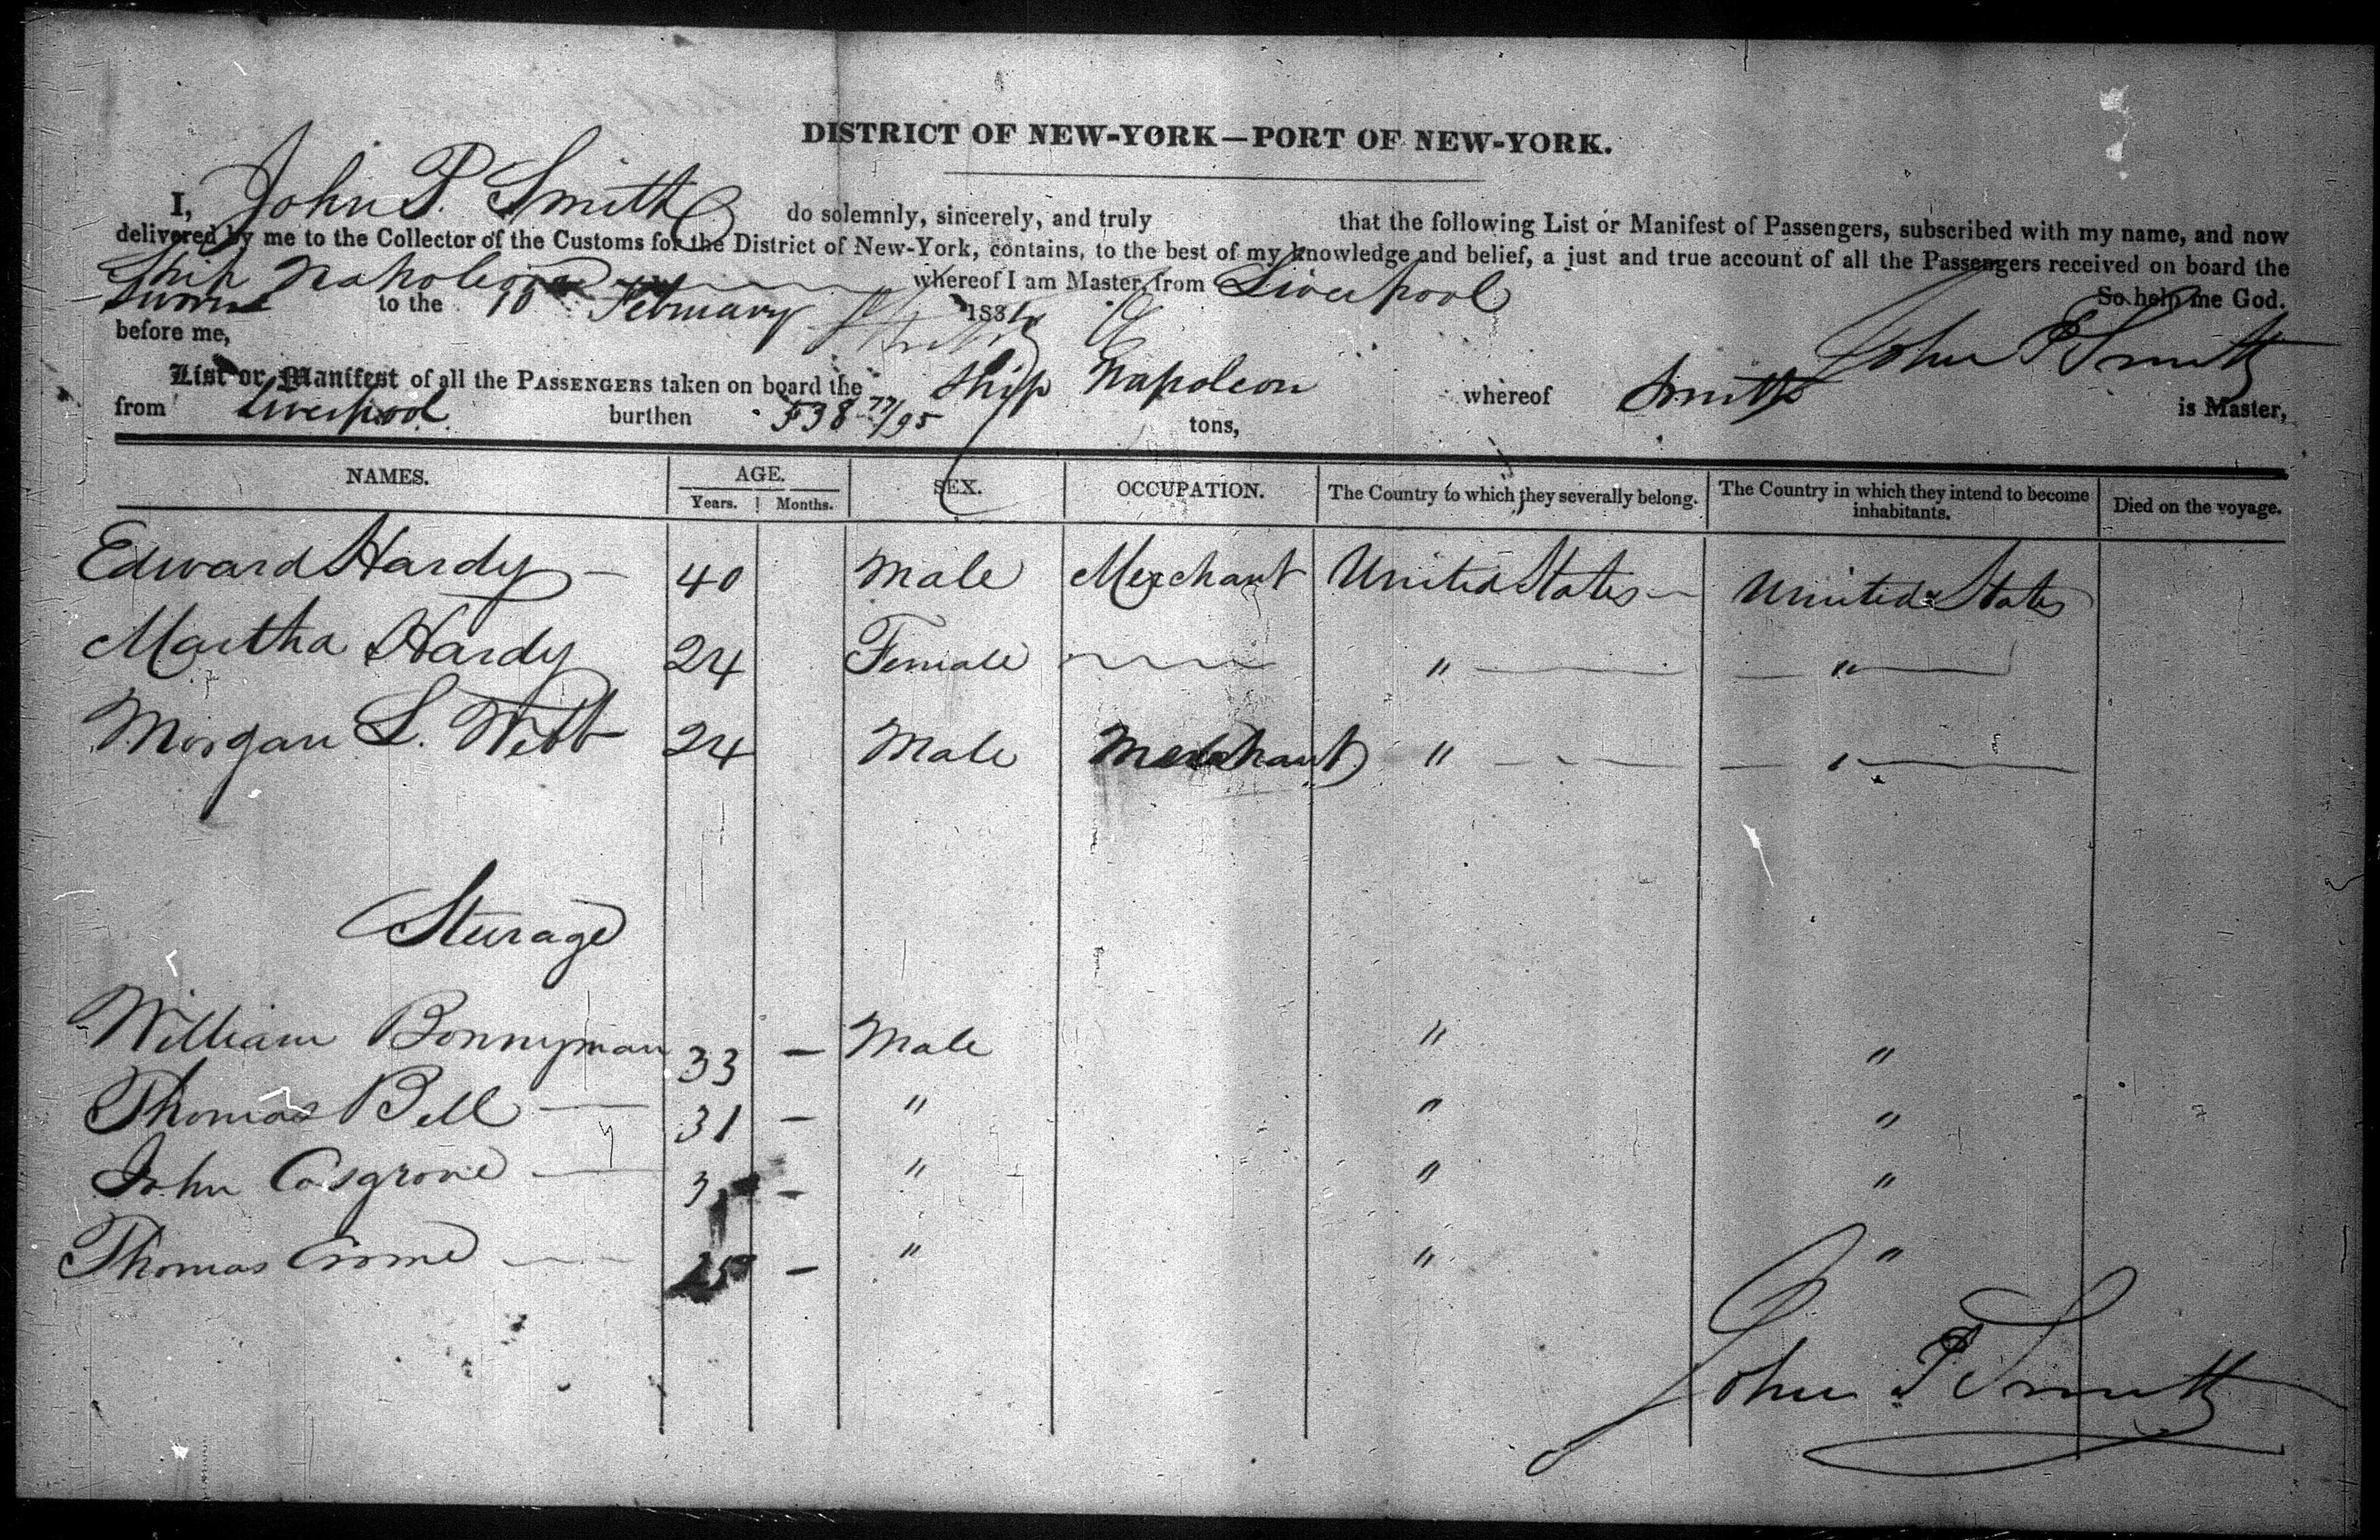 DISTRICT OF NEW-YORK—PORT OF NEW-YORK.
I, John P. Smith do solemnly, sincerely, and truly that the following List or Manifest of Passengers, subscribed with my name, and now
delivered by me to the Collector of the Customs for the District of New-York, contains, to the best of my knowledge and belief, a just and true account of all the Passengers received on board the
Ship Napoleon whereof I am Master, from Liverpool
to the 10 February 183 So help me God.
before me, John P Smith
List or Manifest of all the PASSENGERS taken on board the Ship Napoleon whereof Smith is Master,
from Liverpool burthen 538 77/95 tons,
NAMES. AGE. SEX. OCCUPATION. The Country to which they severally belong. The Country in which they intend to become inhabitants. Died on the voyage.
Years. Months.
Edward Hardy — 40 Male Merchant United States — United States
Martha Hardy 24 Female " "
Morgan L. Webb 24 Male Merchant " "
Steerage
William Bonnyman 33 — Male " "
Thomas Bell — 31 — " " "
John Cosgrove — 3 — " " "
Thomas — 25 — " " "
John P Smith